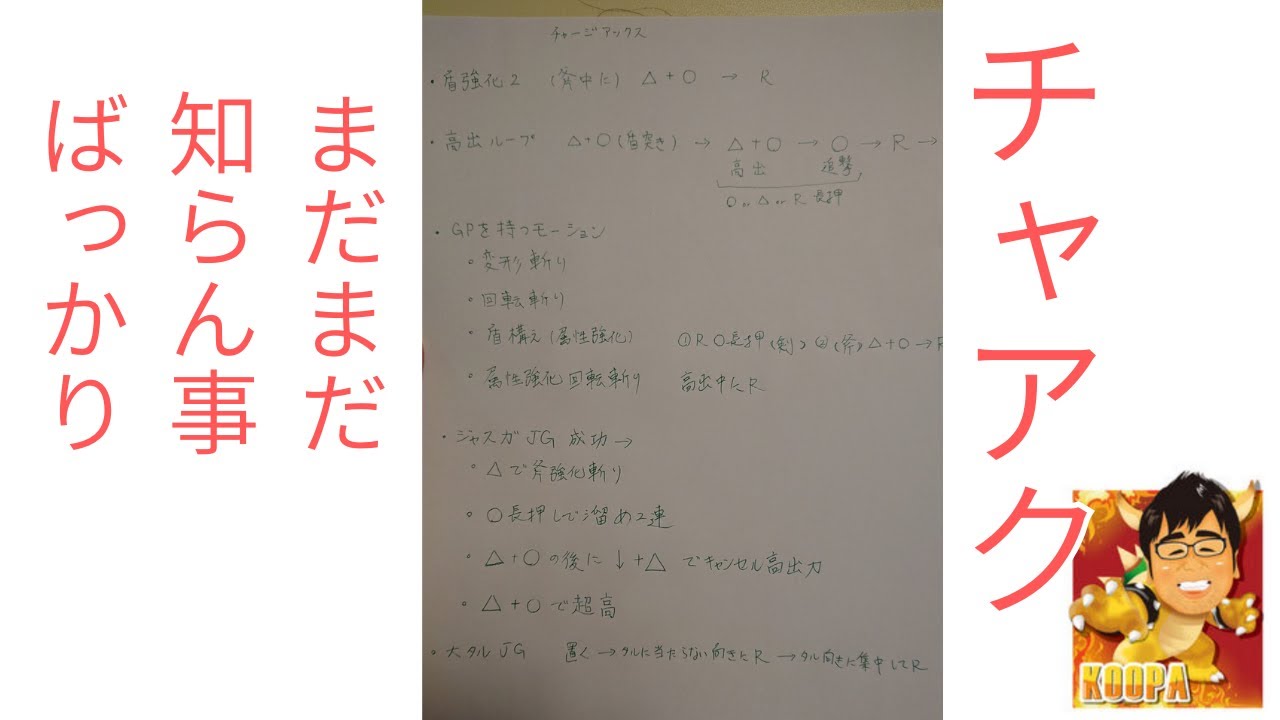 チャアク
まだまだ
知らん事
ばっかり
チャージアックス
・盾強化2 (斧中に) △+○ → R
・高出ループ △+○(盾突き) → △+○ → ○ → R →
高出 追撃
○ or △ or R 長押
・GPを持つモーション
・変形斬り
・回転斬り
・盾構え(属性強化) ①R ○長押(剣) ②(斧) △+○→R
・属性強化回転斬り 高出中にR
・ジャスガJG 成功→
・△で斧強化斬り
・○長押しで溜め2連
・△+○の後に↓+△でキャンセル高出力
・△+○で超高
・大タルJG 置く→タルに当たらない向きにR→タル向きに集中してR
KOOPA